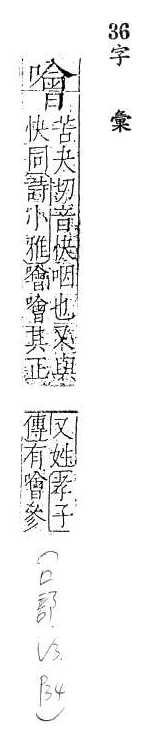 36字彙
噲
苦夬切音快咽也又與
快同詩小雅噲噲其正
又姓孝子
傳有噲參
(口部 V3. P34)